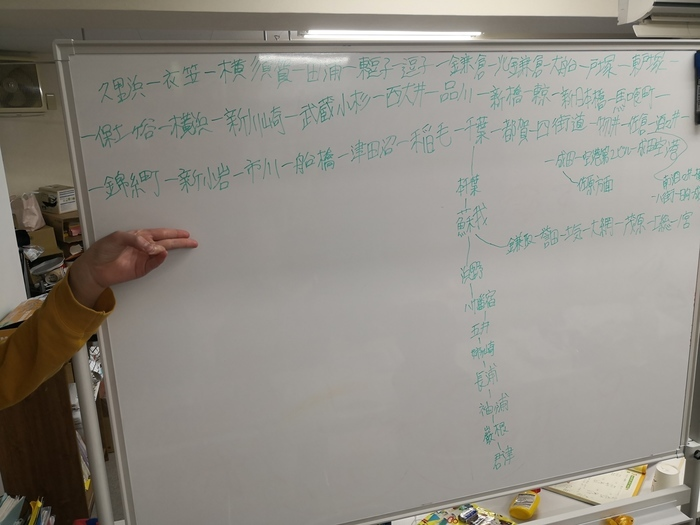 久里浜ー衣笠ー横須賀ー田浦ー東逗子ー逗子ー鎌倉ー北鎌倉ー大船ー戸塚ー東戸塚ー
ー保土ヶ谷ー横浜ー新川崎ー武蔵小杉ー西大井ー品川ー新橋ー東京ー新日本橋ー馬喰町ー
ー錦糸町ー新小岩ー市川ー船橋ー津田沼ー稲毛ー千葉ー都賀ー四街道ー物井ー佐倉ー
ー成田ー空港第2ビルー成田空港
佐原方面
本千葉
蘇我
鎌取ー誉田ー土気ー大網ー茂原ー上総一ノ宮
浜野
八幡宿
五井
姉ヶ崎
長浦
袖ヶ浦
巌根
君津